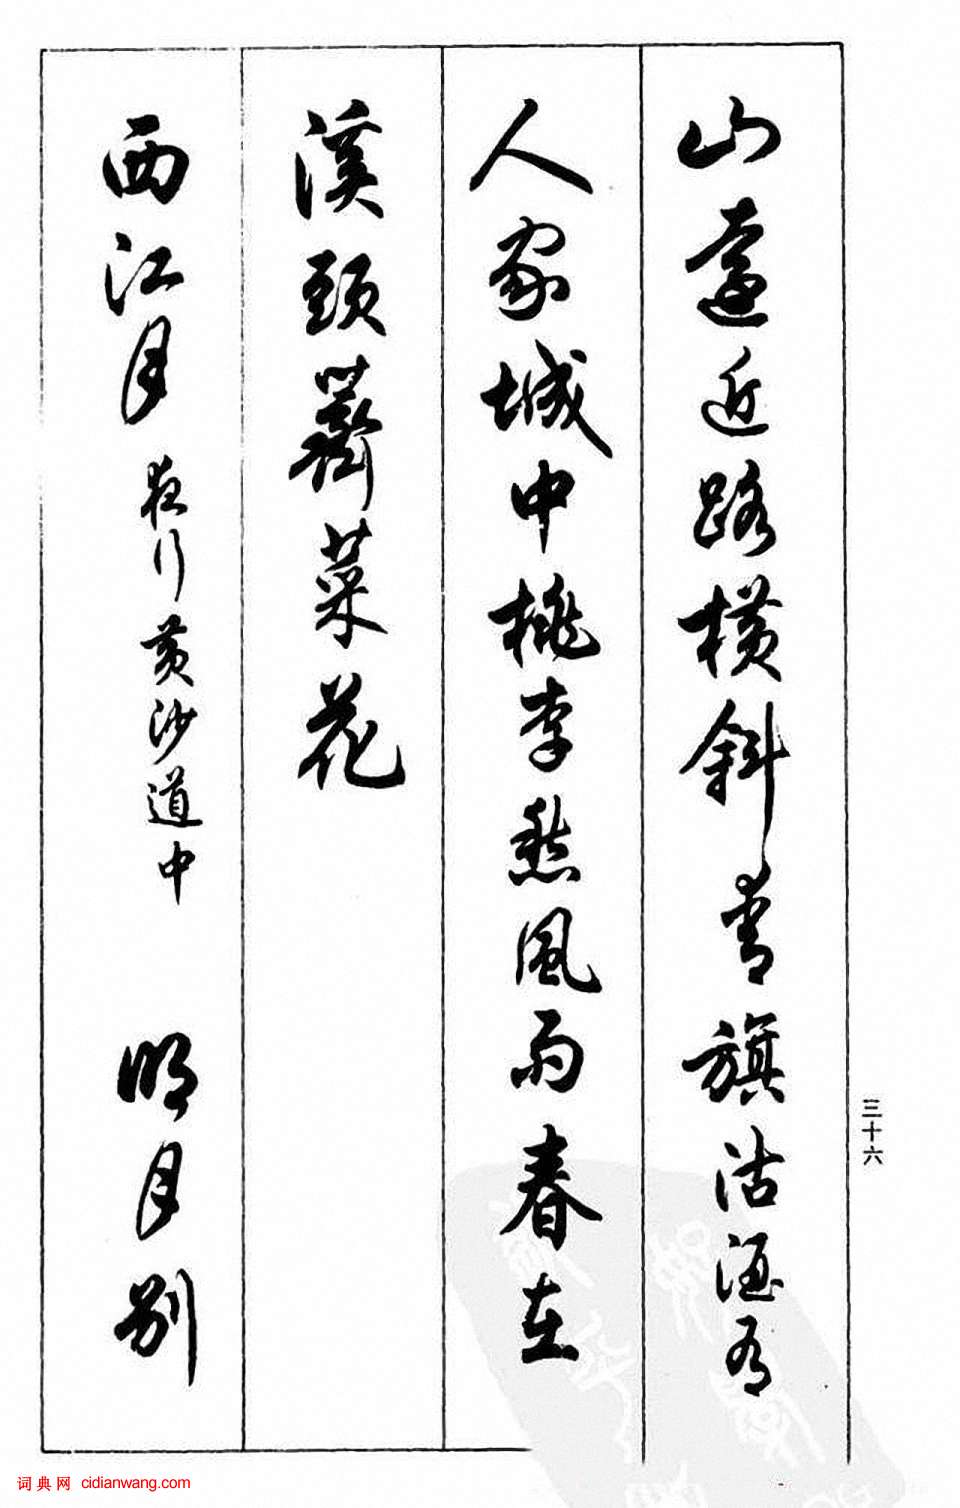 山遠近路橫斜青旗沽酒有
人家城中桃李愁風雨春在
溪頭薺菜花
西江月 夜行黃沙道中 明月別
三十六
词典网 cidianwang.com